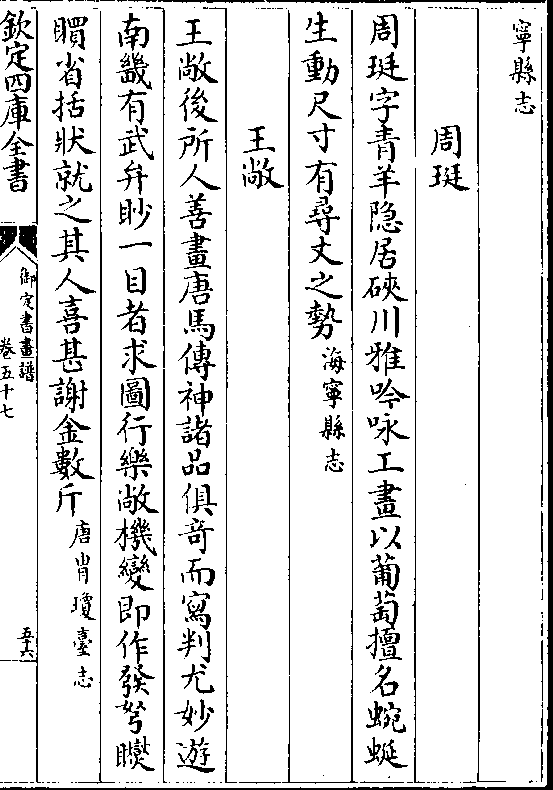 寧縣志
周珽
周珽字青羊隐居硤川雅吟咏工畫以葡萄擅名蜿蜒
生動尺寸有尋丈之勢海寧縣志
王敞
王敞後所人善畫唐馬傳神諸品俱竒而寫判尤妙遊
南畿有武弁眇一目者求圖行樂敞機變即作發弩矘
瞯省括狀就之其人喜甚謝金數斤唐胄瓊臺志
欽定四庫全書
御定書畫譜
卷五十七
五六